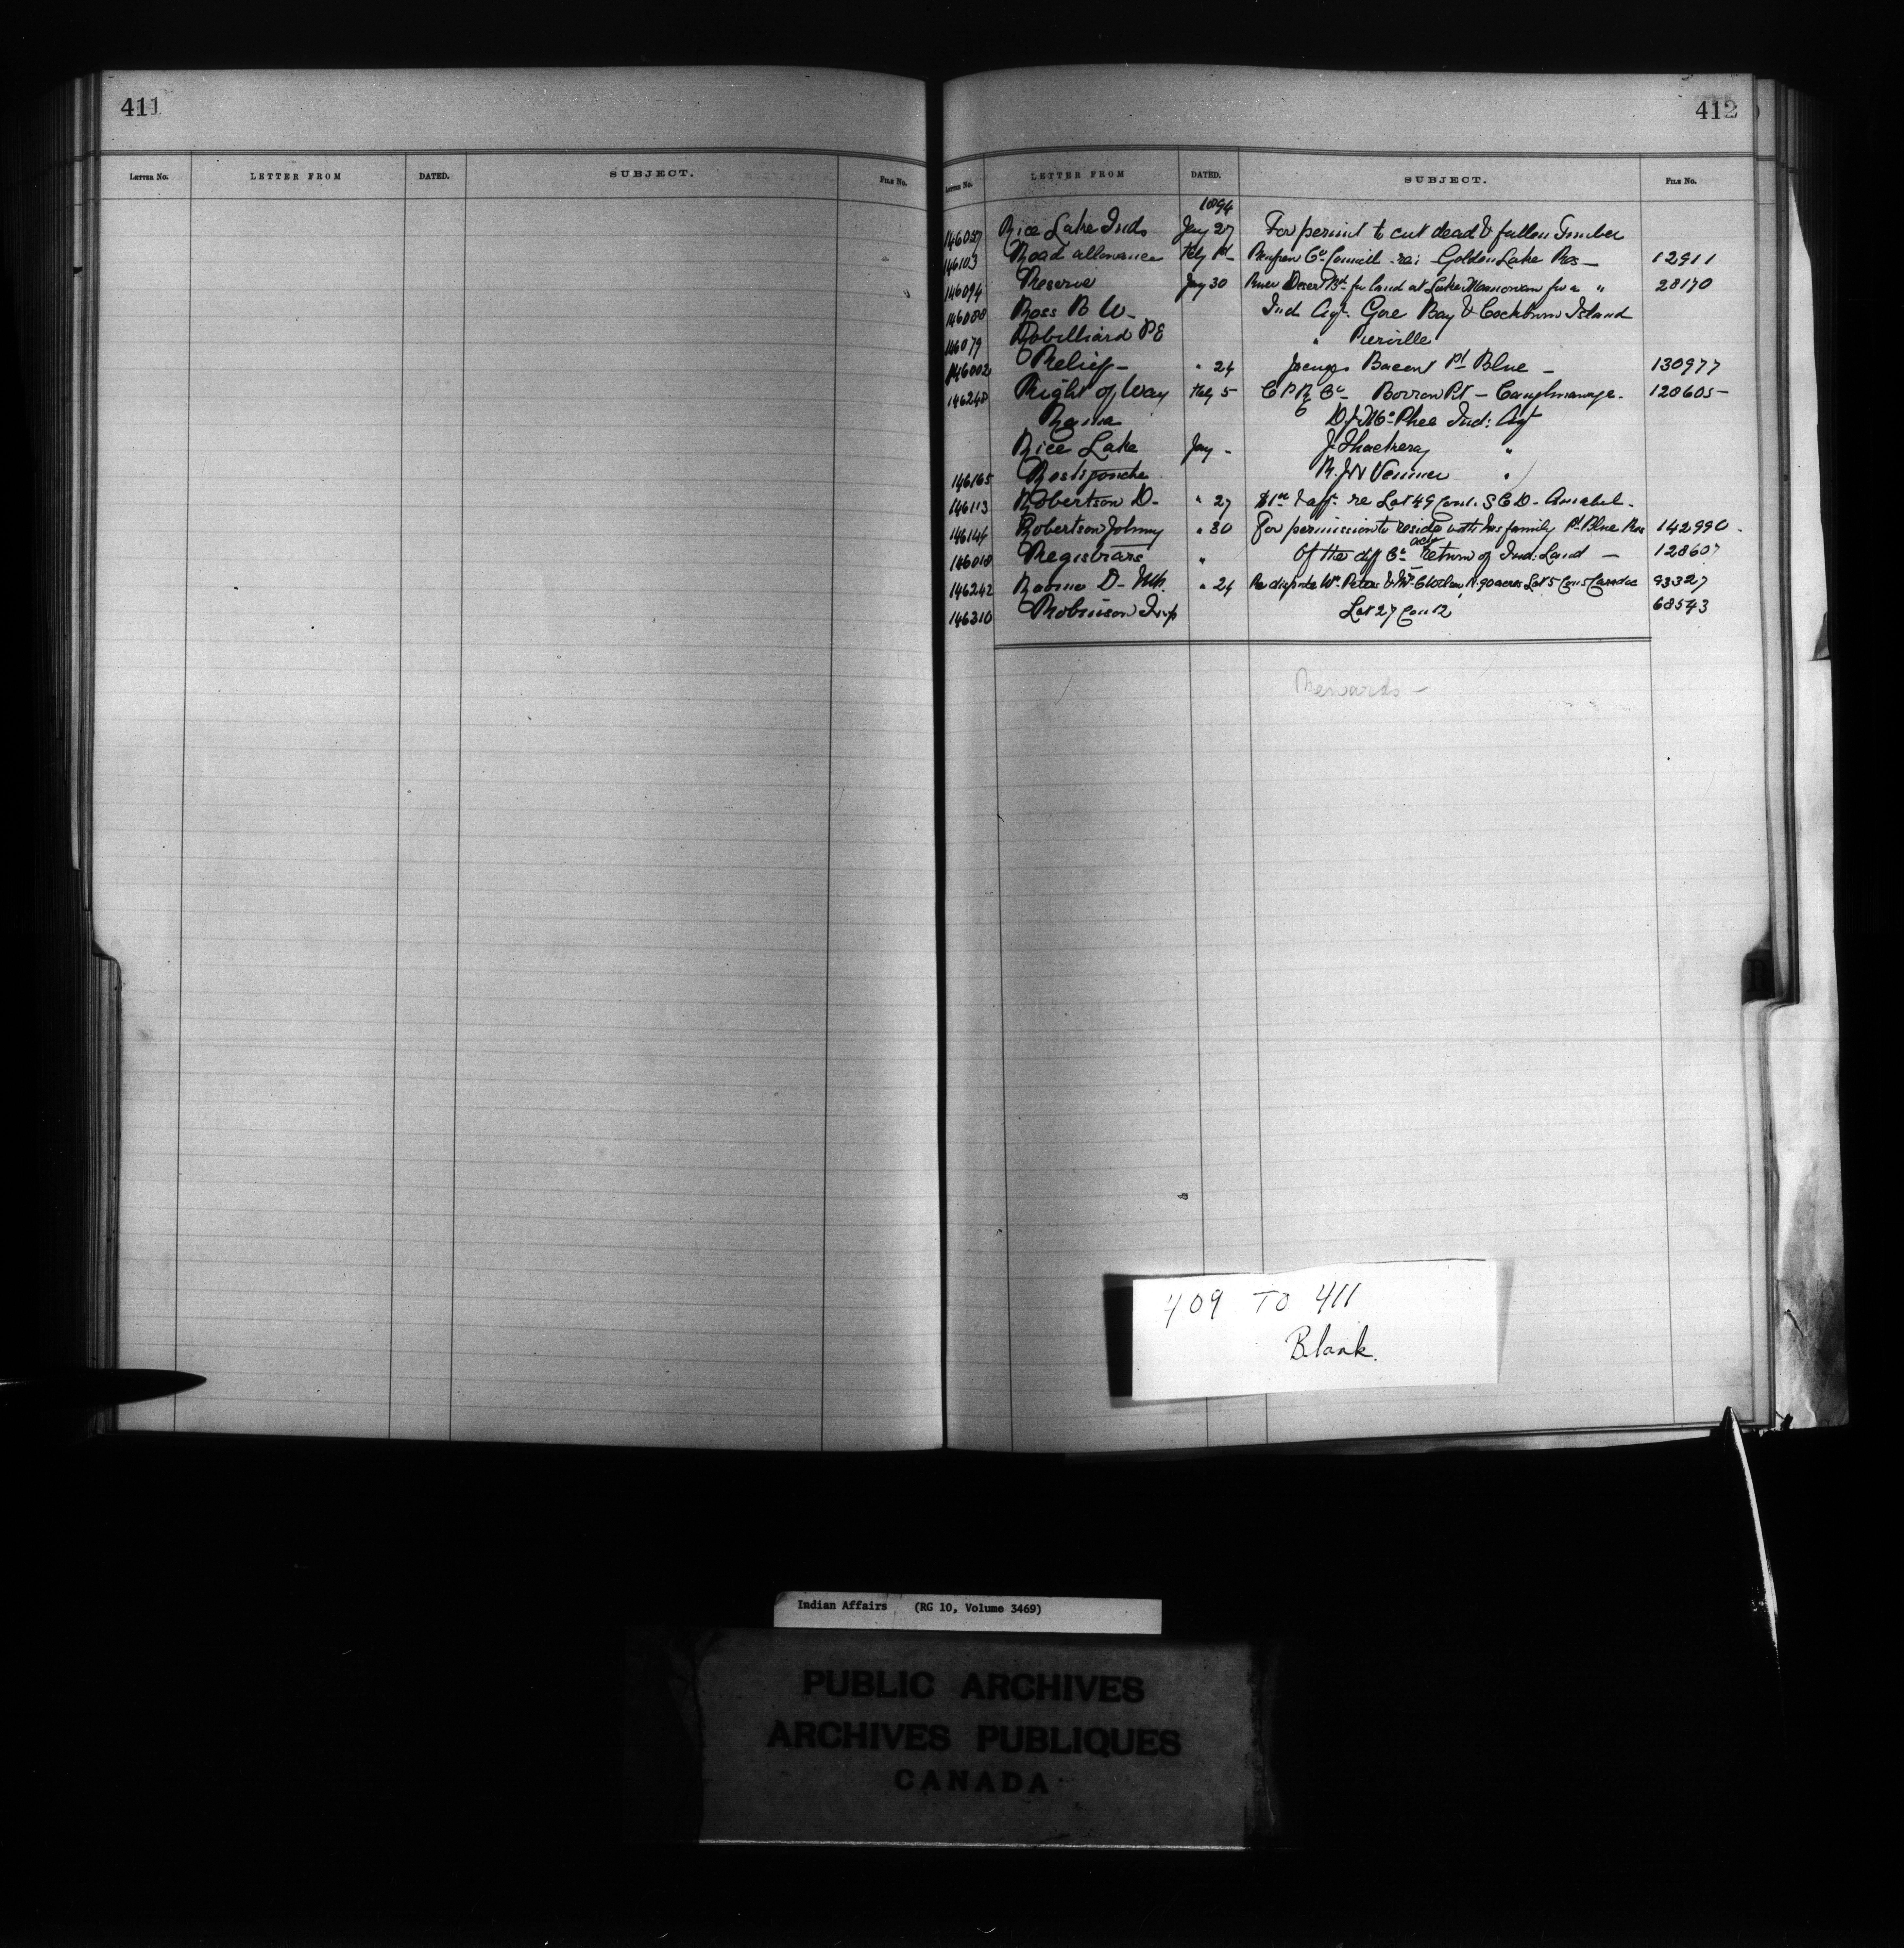 411
LETTER NO. LETTER FROM DATED. SUBJECT. FILE NO.
412
LETTER NO. LETTER FROM DATED. SUBJECT. FILE NO.
1894
Rice Lake Inds Jany 27 For permit to cut dead & fallen Timber
146103 Road allowance Feby 1st Renfrew Co. Council re: Golden Lake Res — 12911
146094 Reserve Jany 30 River Desert Bd. for land at Lake for a " 28170
146088 Ross B W — Ind Agt. Gore Bay & Cockburn Island
146079 Robilliard P E " Pierville
146002 Relief — " 24 Jacques Pt Blue — 130977
146248 Right of Way Feby 5 C P R Co — Borrow Pit — Caughnawaga. 128605
Rama D. J. McPhee Ind: Agt
Rice Lake Jany - J. Thackeray "
146165 Restigouche "
146113 Robertson D — " 27 re Lot 49 Con 1. S C D — Amabel —
146144 Robertson Johnny " 30 For permission to reside with his family Pt Blue Res 142990 -
146018 Registrars " Of the diff Co. return of Ind: Land — 128607
146242 " 24 Re dispute Wm Peters & 90 acres Lot 5 Con 5 Caradoc 93327
146310 Robinson Twp Lot 27 Con 12 68543
Rewards —
409 TO 411
Blank.
Indian Affairs (RG 10, Volume 3469)
PUBLIC ARCHIVES
ARCHIVES PUBLIQUES
CANADA